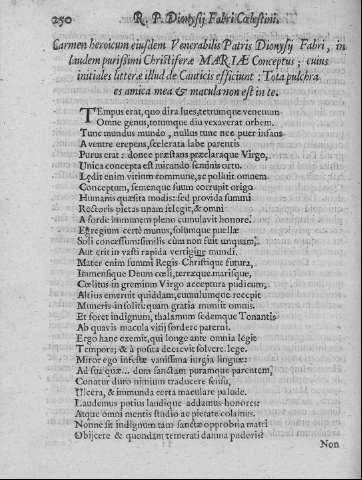 250 R. P. Dionysij Fabri Cœlestini.
Carmen heroicum eiusdem Venerabilis Patris Dionysij Fabri, in
laudem purissimi Christiferæ MARIÆ Conceptus; cuius
initiales litteræ illud de Canticis efficiunt: Tota pulchra
es amica mea & macula non est in te.
TEmpus erat, quo dira lues, tetrumque venenum
Omne genus, totumque diu vexaverat orbem.
Tunc mundus mundo, nullus tunc nec puer insans
A ventre erepens, scelerata labe parentis
Purus erat: donec præstans præclaraque Virgo,
Unica concepta est mirando seminis ortu.
Lędit enim vitium commune, ac polluit omnem
Conceptum, semenque suum corrupit origo
Humanis quæsita modis: sed provida summi
Rectoris pietas unam selegit, & omni
A sorde immunem pleno cumulavit honore.
Egregium certè munus, solumque puellæ
Soli concessum: similis cùm non fuit unquam,
Aut erit in vasti rapida vertigine mundi.
Mater enim summi Regis Christique futura,
Immensique Deum cœli, terræque marisque,
Cœlitus in gremium Virgo acceptura pudicum,
Altius emeruit quiddam, cumulumque recepit
Muneris insoliti: quam gratia munijt omnis.
Et foret indignum, thalamum sedemque Tonantis
Ab quavis macula vitij sordere paterni.
Ergo hanc exemit, qui longe ante omnia lęgit
Tempora; & à posita decrevit solvere lege.
Miror ego infestæ vanissima iurgia linguæ:
Ad sua quæ... dum sanctam puramque parentem,
Conatur duro nimium traducere sensu,
Ulcera, & immunda certa maculare palude.
Laudemus potius laudique addamus honores:
Atque omni mentis studio ac pietate colamus.
Nonne sit indignum tam sanctæ opprobria matri
Objicere & quondam temerati damna pudoris?
Non